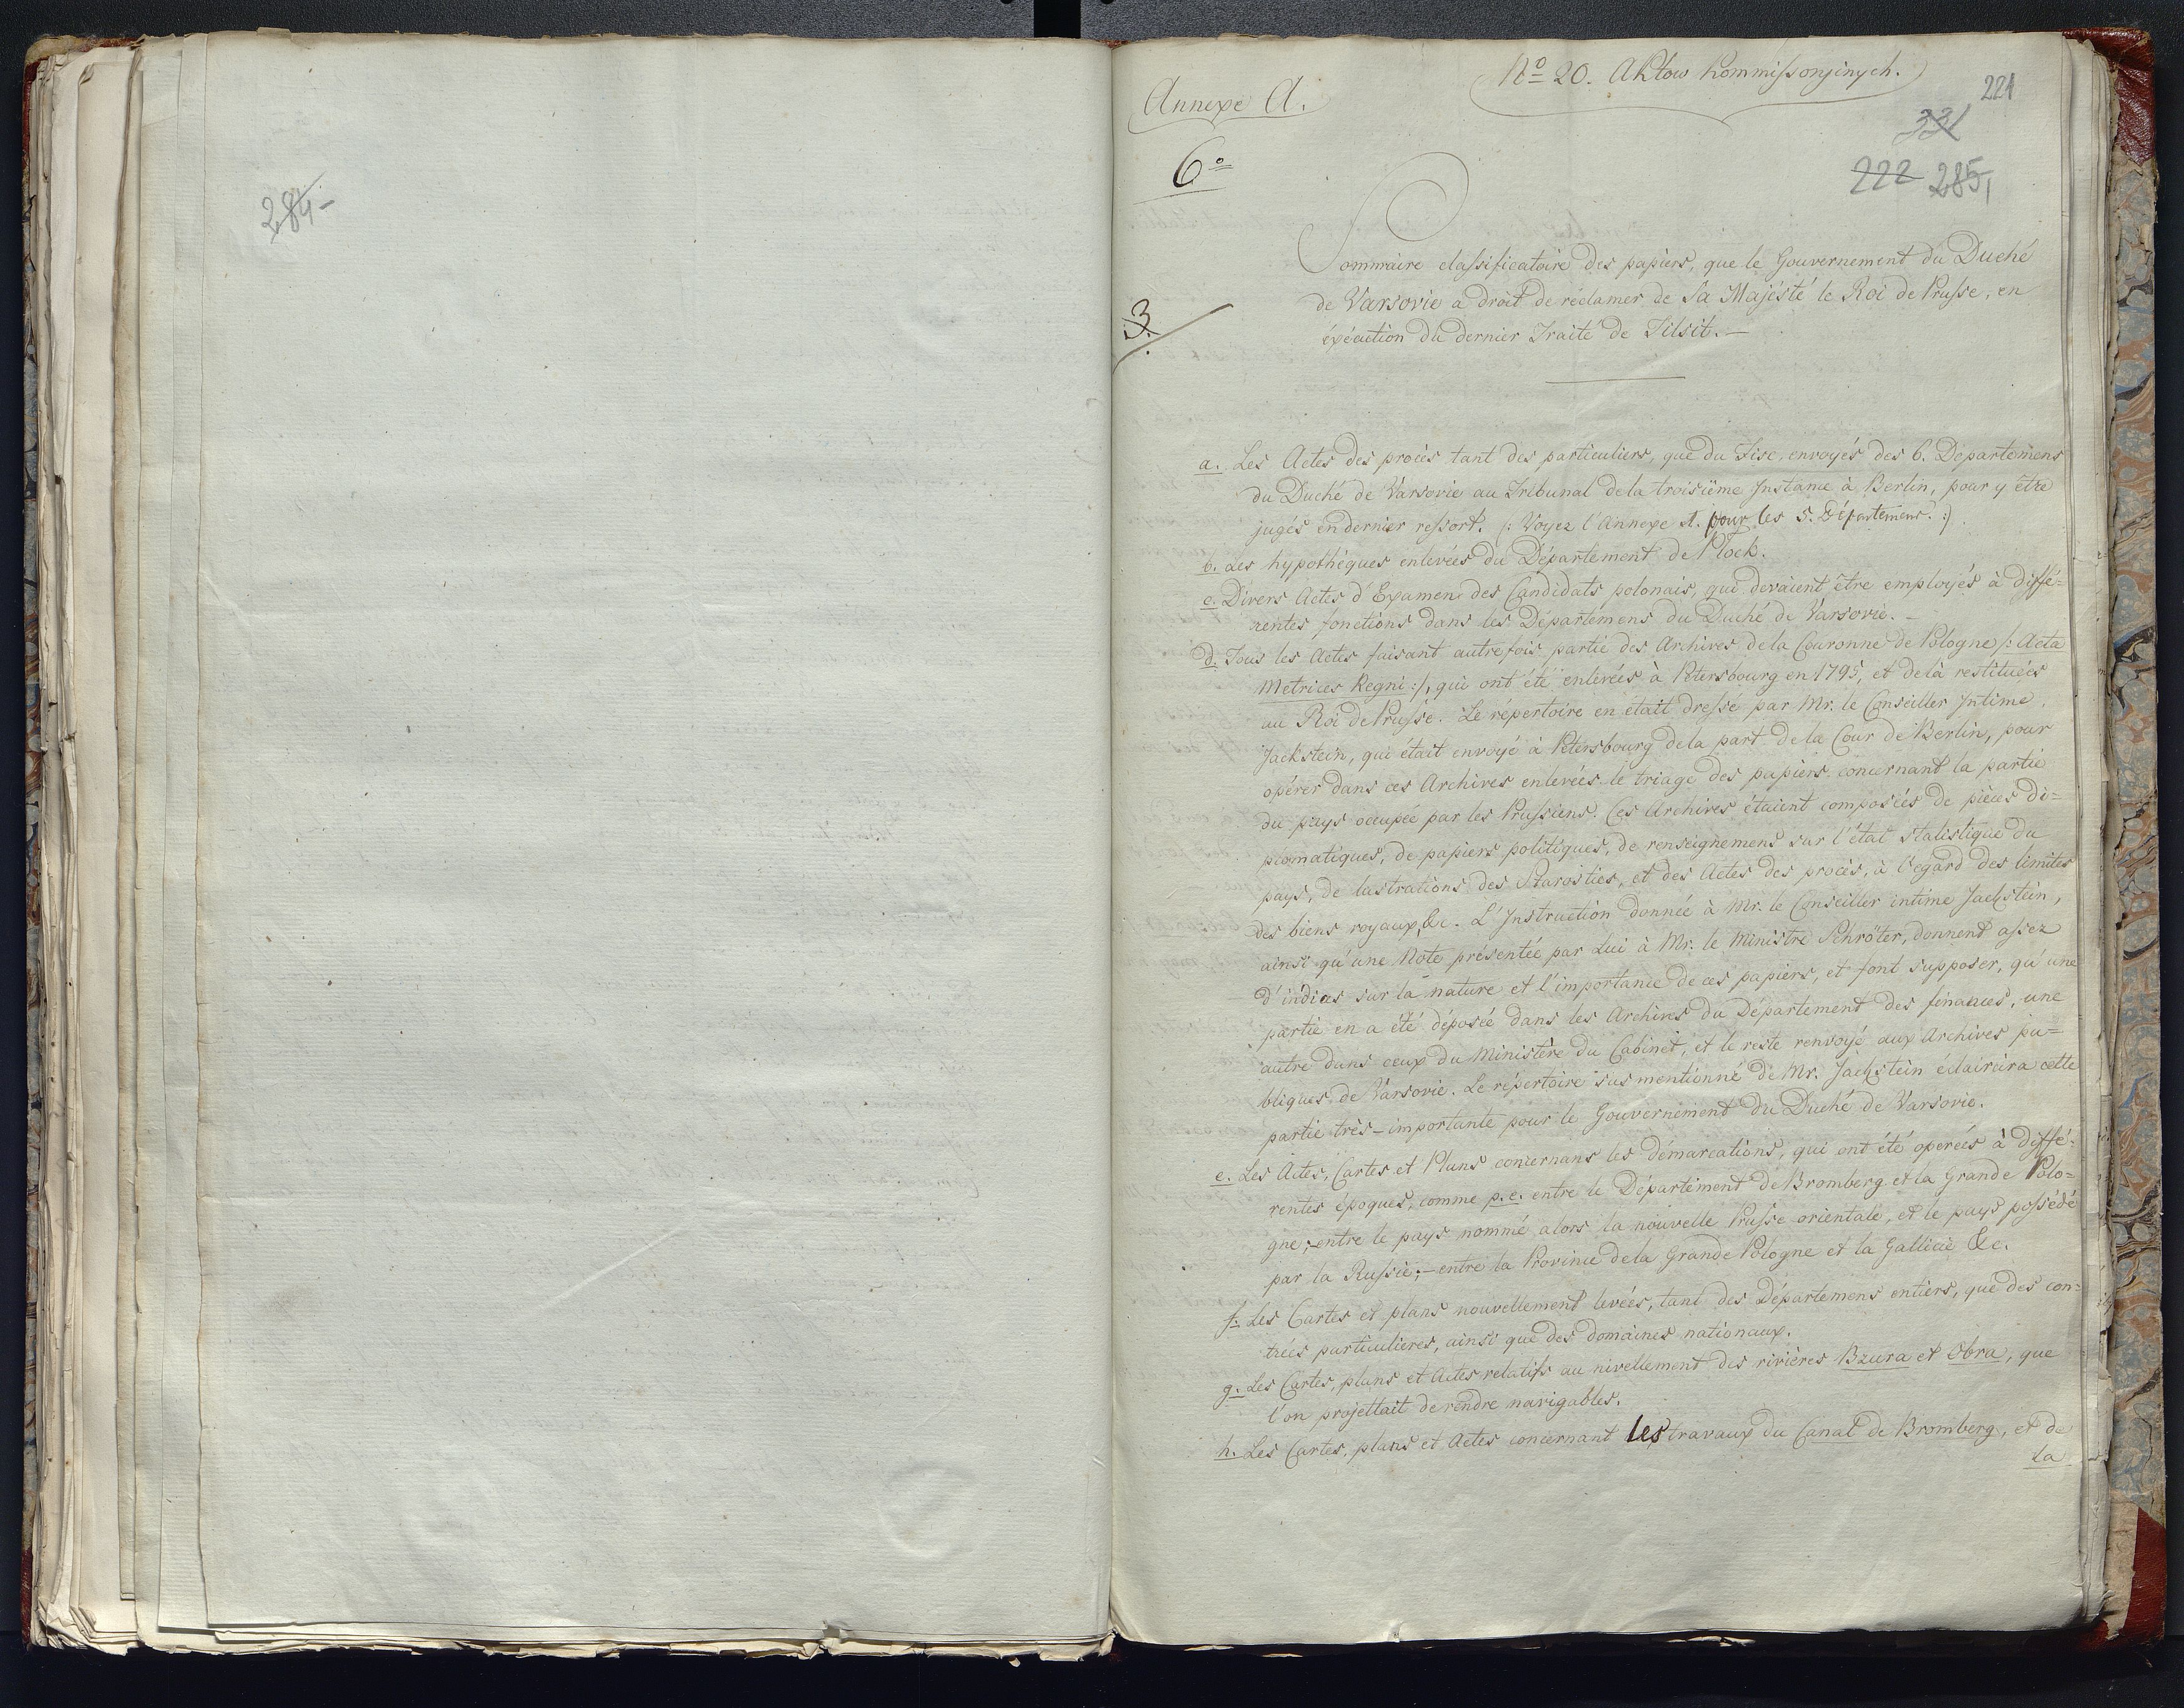 284
Annexe A.
No 20. Aktow Kommissoryinych.
221
331
222 285,
6o
3
Sommaire classificatoire des papiers, que le Gouvernement du Duché
de Varsovie a droit de réclamer de Sa Majésté le Roi de Prusse, en
éxécution du dernier Traité de Tilsit. —
a. Les Actes des procès tant des particuliers, que du Fisc, envoyés des 6. Départemens
du Duché de Varsovie au Tribunal de la troisiême Instance à Berlin, pour y etre
jugés en dernier ressort. /: Voyez l'Annexe 1. pour les 5. Départemens. :/
b. Les hypothèques enlevées du Département de Plock.
c. Divers Actes d'Examen des Candidats polonais, qui devaient être employés à diffé=
rentes fonctions dans les Départemens du Duché de Varsovie. -
d. Tous les Actes faisant autrefois partie des Archives de la Couronne de Pologne /: Acta
Metrices Regni :/, qui ont été enlevées à Pétersbourg en 1795, et delà restituées
au Roi de Prusse. Le répertoire en était dressé par Mr. le Conseiller Intime
Jackstein, qui était envoyé à Petersbourg de la part de la Cour de Berlin, pour
opérer dans ces Archives enlevées le triage des papiers concernant la partie
du pays occupée par les Prussiens. Ces Archives étaient composées de pièces di=
plomatiques, de papiers politiques, de renseignemens sur l'état statistique du
pays, de lustrations des Starosties, et des Actes des procès, à l'egard des limites
des biens royaux, &c. L'Instruction donnée à Mr. le Conseiller intime Jackstein,
ainsi qu'une Note présentée par Lui à Mr. le Ministre Schröter, donnent assez
d'indices sur la nature et l'importance de ces papiers, et font supposer, qu'une
partie en a été déposée dans les Archives du Département des finances, une
autre dans ceux du Ministère du Cabinet, et le reste renvoyé aux Archives pu=
bliques de Varsovie. Le répertoire susmentionné de Mr. Jackstein éclaircira cette
partie très-importante pour le Gouvernement du Duché de Varsovie.
e. Les Actes, Cartes et Plans concernans les démarcations, qui ont été operées à diffé=
rentes époques, comme p. e. entre le Département de Bromberg et la Grande Polo=
gne; - entre le pays nommé alors la nouvelle Prusse orientale, et le pays possédé
par la Russie; - entre la Province de la Grande Pologne et la Gallicie &c.
f. Les Cartes et plans nouvellement levées, tant des Départemens entiers, que des con=
trées particulieres, ainsi que des domaines nationaux.
g. Les Cartes, plans et Actes relatifs au nivellement des rivières Bzura et Obra, que
l'on projettait de rendre navigables.
h. Les Cartes, plans et Actes concernant les travaux du Canal de Bromberg, et de
la